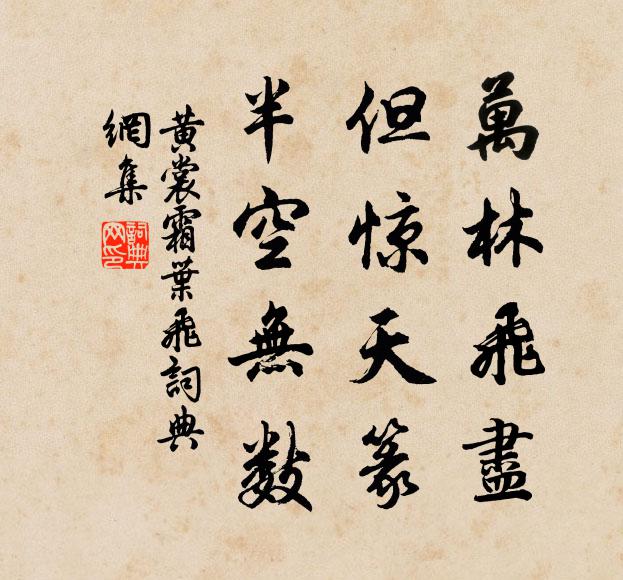 萬林飛盡
但惊天篆
半空無数
黄裳霜葉飛詞典
網集
詞典
网印